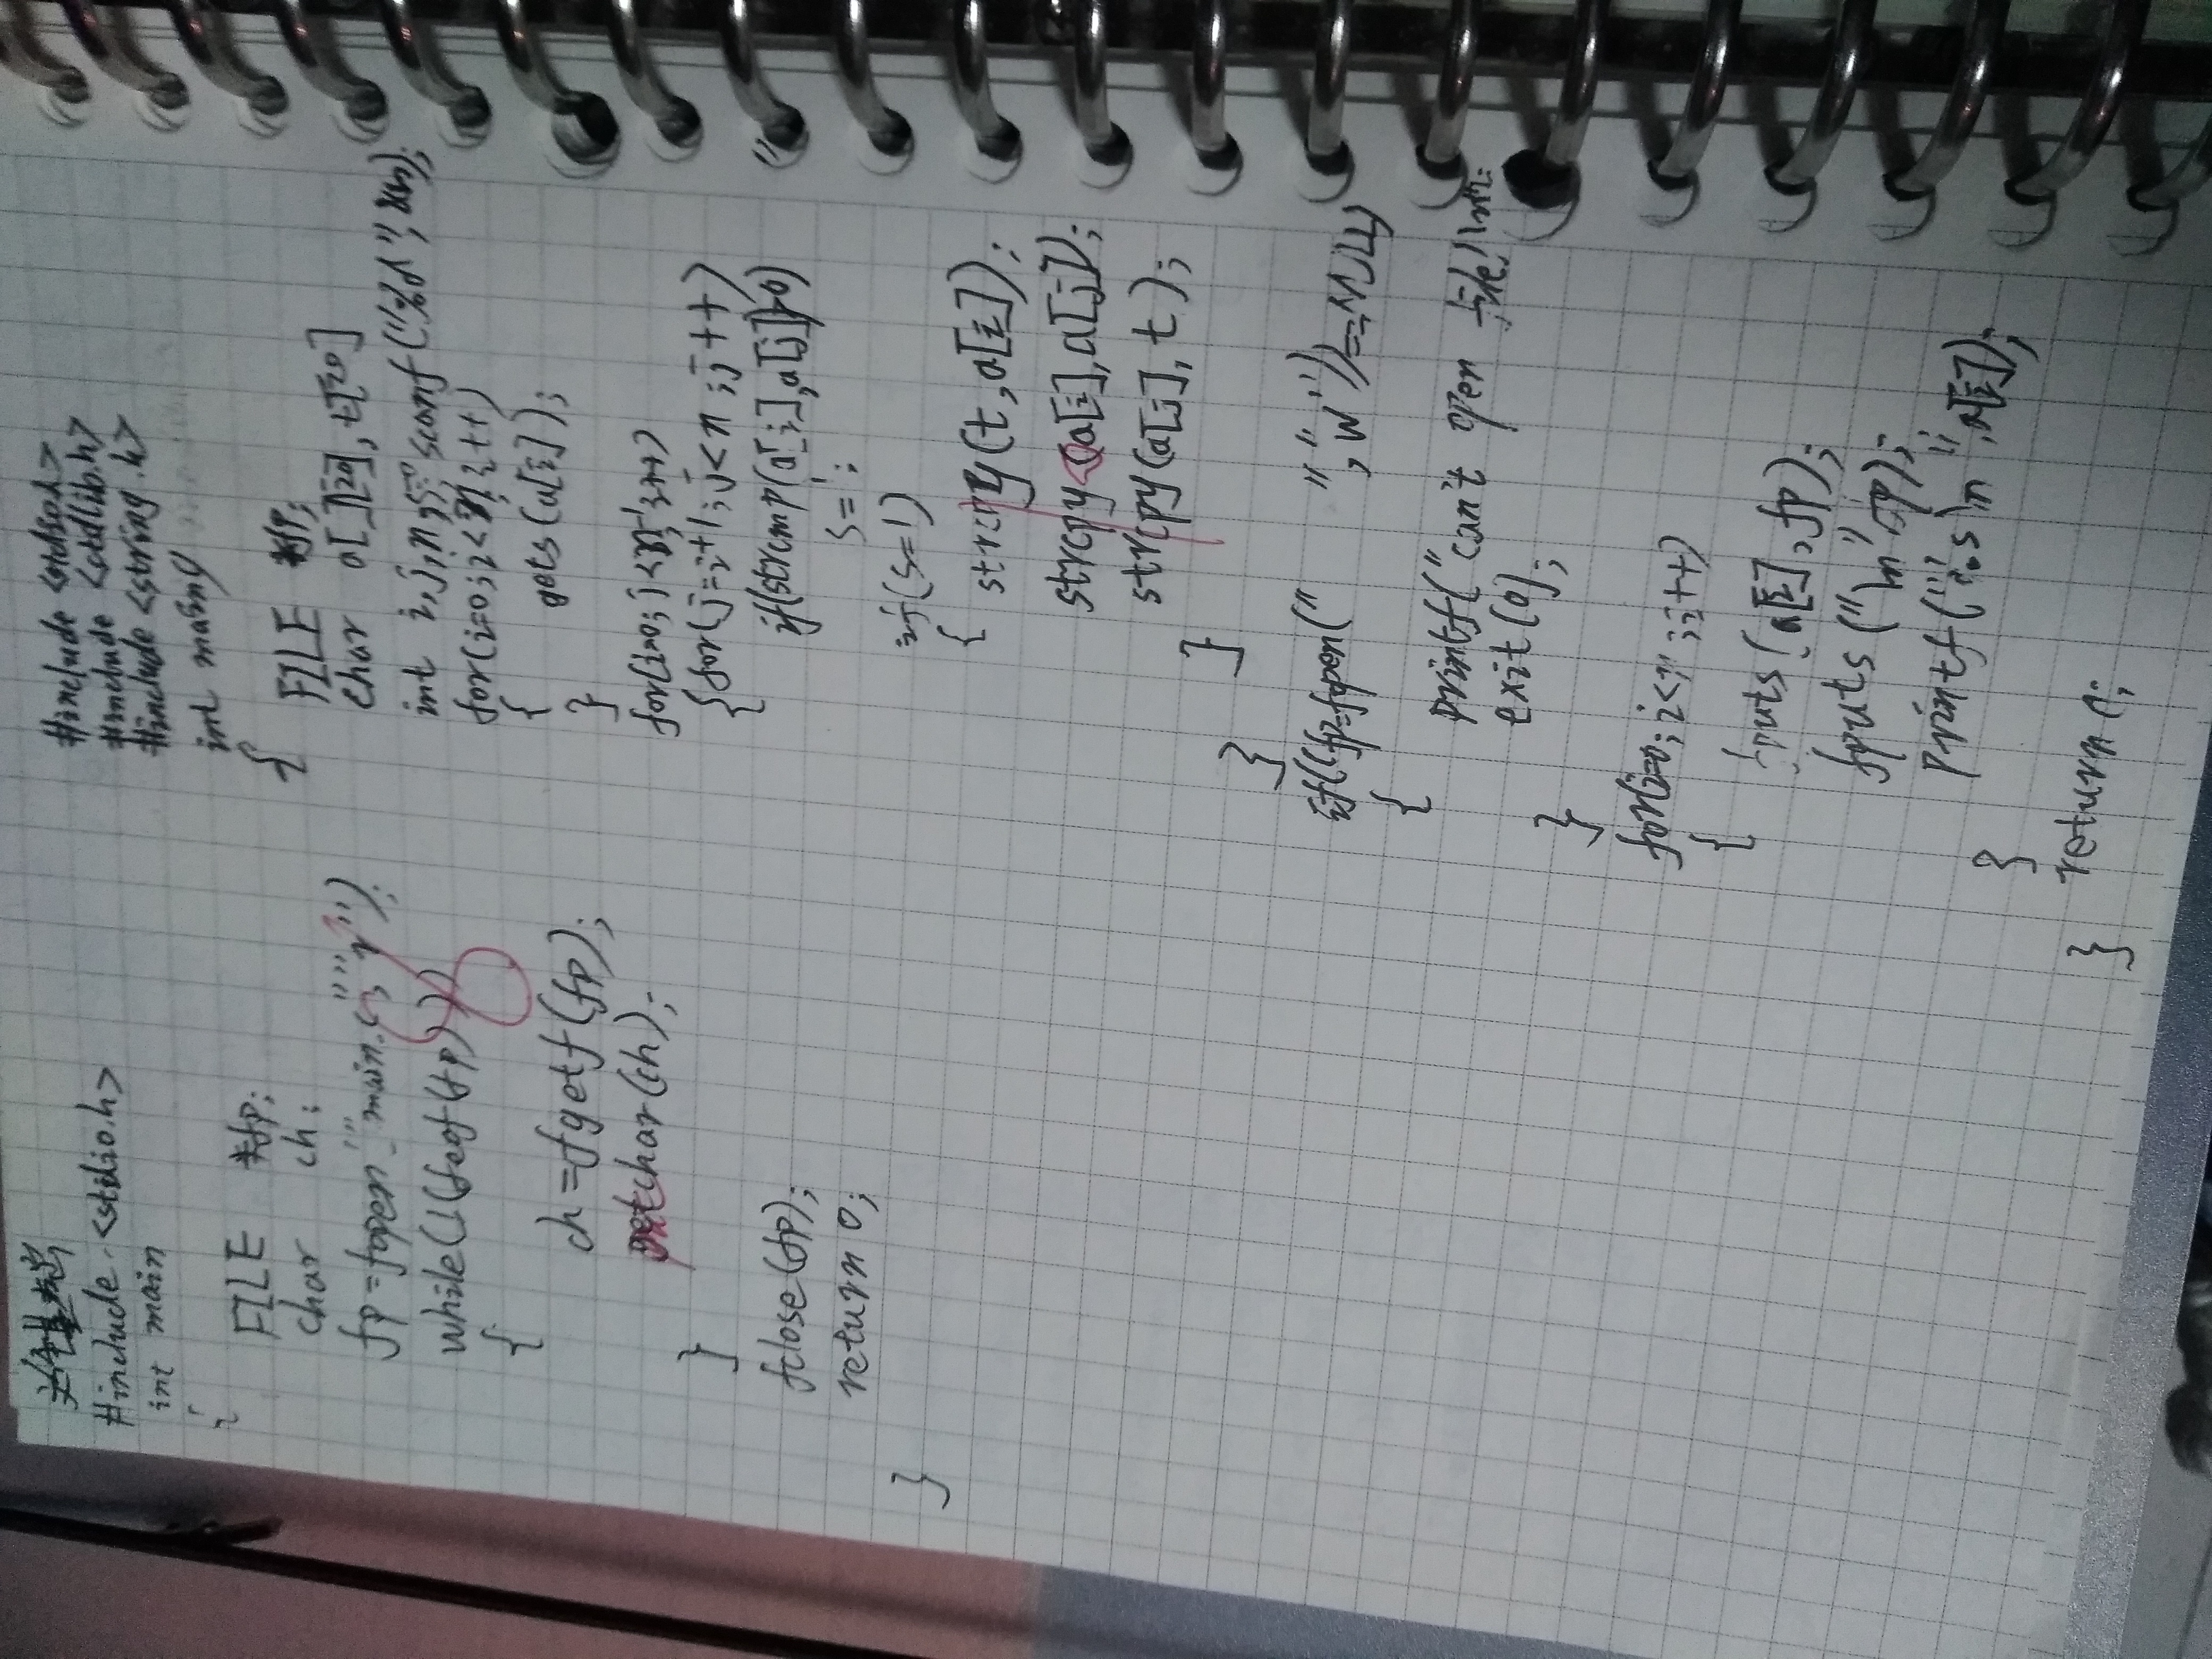 #include <stdio.h>
int main
{
FILE *fp;
char ch;
fp=fopen "main.c" "r");
while(!(feof(fp)))
{
ch=fgetf(fp);
putchar(ch);
}
fclose(fp);
return 0;
}
#include <stdlib.h>
#include <string.h>
int main
{
FILE *fp;
char a[ ][20], t[20]
int i,j,n,s=0 scanf("%d",&n);
for(i=0;i<n;i++)
{
gets(a[i]);
}
for(i=0;i<n-1;i++)
{for(j=i+1;j<n;j++)
if(strcmp(a[i],a[j])>0)
s=1;
if(s=1)
{
strcpy(t,a[i]);
strcpy(a[i],a[j]);
strcpy(a[j],t);
}
}
if((fp=fopen(" ","w"))==NULL)
{
printf("can't open file!\n");
exit(0);
}
for(i=0;i<n;i++)
{
fputs(a[i],fp);
fputs("\n",fp);
printf("%s\n",a[i]);
}
return 0;
}